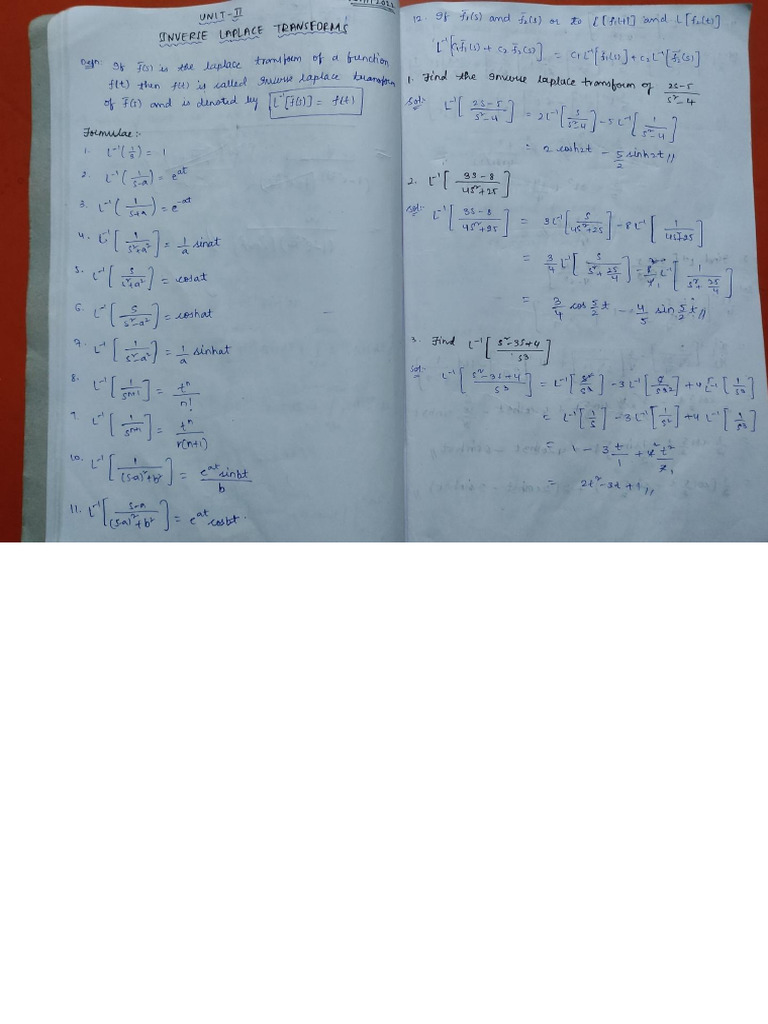 UNIT-II
INVERSE LAPLACE TRANSFORMS
Defn: If f̄(s) is the laplace transform of a function
f(t) then f(t) is called Inverse laplace transform
of f̄(s) and is denoted by L⁻¹[f̄(s)] = f(t)
Formulae:-
1. L⁻¹(1/s) = 1
2. L⁻¹(1/(s-a)) = e^at
3. L⁻¹(1/(s+a)) = e^-at
4. L⁻¹[1/(s²+a²)] = 1/a sinat
5. L⁻¹[s/(s²+a²)] = cosat
6. L⁻¹[s/(s²-a²)] = coshat
7. L⁻¹[1/(s²-a²)] = 1/a sinhat
8. L⁻¹[1/s^(n+1)] = t^n/n!
9. L⁻¹[1/s^(n+1)] = t^n/Γ(n+1)
10. L⁻¹[1/((s-a)²+b²)] = e^at sinbt/b
11. L⁻¹[(s-a)/((s-a)²+b²)] = e^at cosbt.
12. If f̄₁(s) and f̄₂(s) or to L[f₁(t)] and L[f₂(t)]
L⁻¹[c₁f̄₁(s) + c₂f̄₂(s)] = c₁L⁻¹[f̄₁(s)] + c₂L⁻¹[f̄₂(s)]
1. Find the Inverse laplace transform of (2s-5)/(s²-4)
Sol:- L⁻¹[(2s-5)/(s²-4)] = 2L⁻¹[s/(s²-4)] - 5L⁻¹[1/(s²-4)]
= 2cosh2t - 5/2 sinh2t //
2. L⁻¹[(3s-8)/(4s²+25)]
Sol:- L⁻¹[(3s-8)/(4s²+25)] = 3L⁻¹[s/(4s²+25)] - 8L⁻¹[1/(4s²+25)]
= 3/4 L⁻¹[s/(s²+25/4)] - L⁻¹[1/(s²+25/4)]
= 3/4 cos 5/2 t - 4/5 sin 5/2 t //
3. Find L⁻¹[(s²-3s+4)/s³]
Sol:- L⁻¹[(s²-3s+4)/s³] = L⁻¹[s²/s³] - 3L⁻¹[s/s³] + 4L⁻¹[1/s³]
= L⁻¹[1/s] - 3L⁻¹[1/s²] + 4L⁻¹[1/s³]
= 1 - 3 t/1 + 4 t²/2
= 2t²-3t+1 //